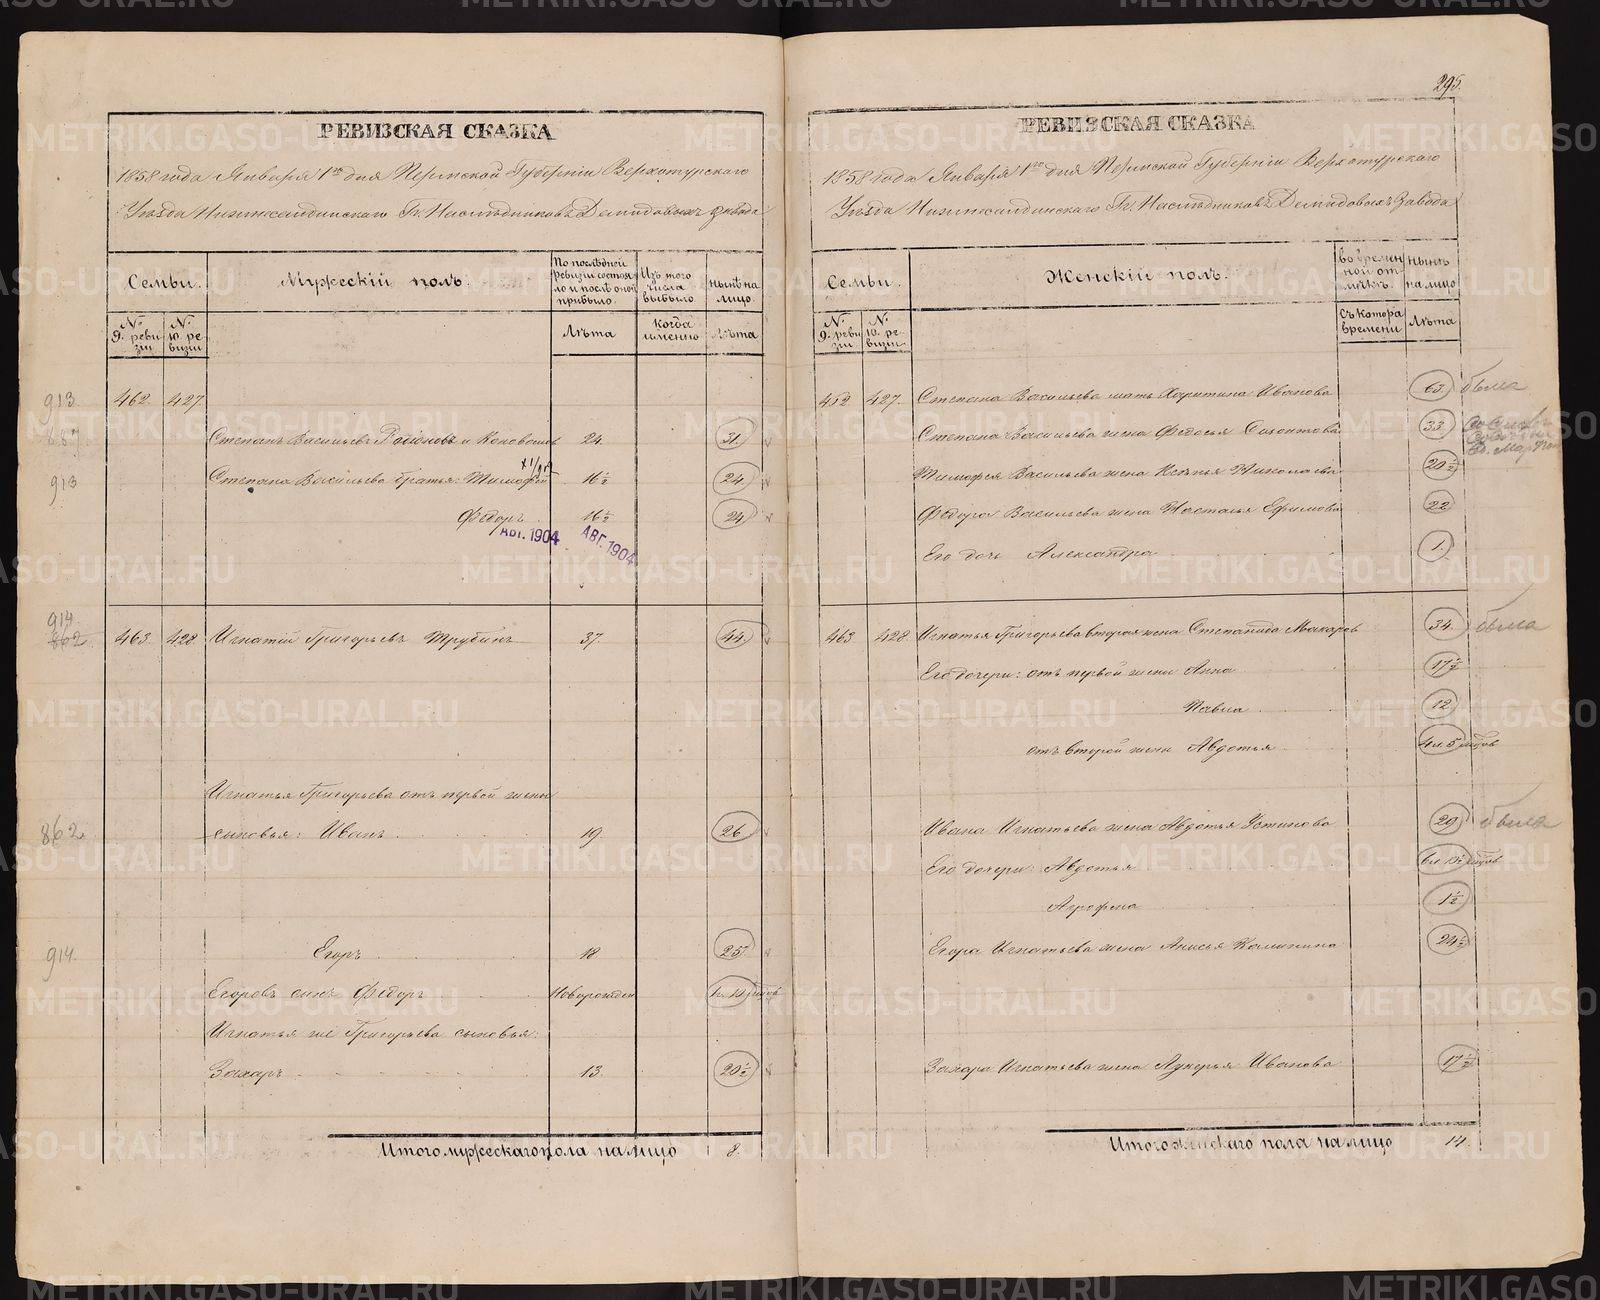 295.
РЕВИЗСКАЯ СКАЗКА
1858 года Января 1го дня Пермской Губерніи Верхотурскаго
Уѣзда Нижнесалдинскаго Гг. Наслѣдниковъ Демидовыхъ завода
Семьи.
Мужескій полъ.
По послѣдней ревизіи состояло и послѣ оной прибыло.
Изъ того числа выбыло
нынѣ на лицо.
№ 9. ревизіи
№ 10. ревизіи
Лѣта
Когда именно
Лѣта
913
462. 427.
887
Степанъ Васильевъ и Коновалов 24. 31.
913 Степана Васильева братья: Тимофей 16½ 24
Федоръ 16½ 24
АВГ. 1904 АВГ. 1904
914
862 463. 428 Игнатій Григорьевъ Трубинъ 37. 44.
Игнатья Григорьева отъ первой жены
862 сыновья: Иванъ 19 26
914. Егоръ 18 25
Егоровъ сынъ Федоръ Новорожден
Игнатья же Григорьева сыновья:
Захаръ 13. 20½
Итого мужескаго пола на лицо 8.
РЕВИЗСКАЯ СКАЗКА
1858 года Января 1го дня Пермской Губерніи Верхотурскаго
Уѣзда Нижнесалдинскаго Гг. Наслѣдниковъ Демидовыхъ Завода
Семьи.
Женскій полъ.
Во временной отлучкѣ.
Нынѣ на лицо
№ 9. ревизіи
№ 10. ревизіи
Съ котора времени
Лѣта
462 427. Степана Васильева мать Харитина Иванова 63. была
Степана Васильева жена Федосья 33
Тимофея Васильева жена Ксенья Николаева 20½
Федора Васильева жена Настасья Ефимова 22
Его дочь Александра 1.
463 428. Игнатья Григорьева вторая жена Степанида Макаров 34. была
Его дочери: отъ первой жены Анна 17½
Павла 12
отъ второй жены Авдотья
Ивана Игнатьева жена Авдотья Устинова 29 была
Его дочери: Авдотья
Агрофена 1½
Егора Игнатьева жена Анисья Калинина 24½
Захара Игнатьева жена Лукерья Иванова 17½
Итого женскаго пола на лицо 14.
METRIKI.GASO-URAL.RU